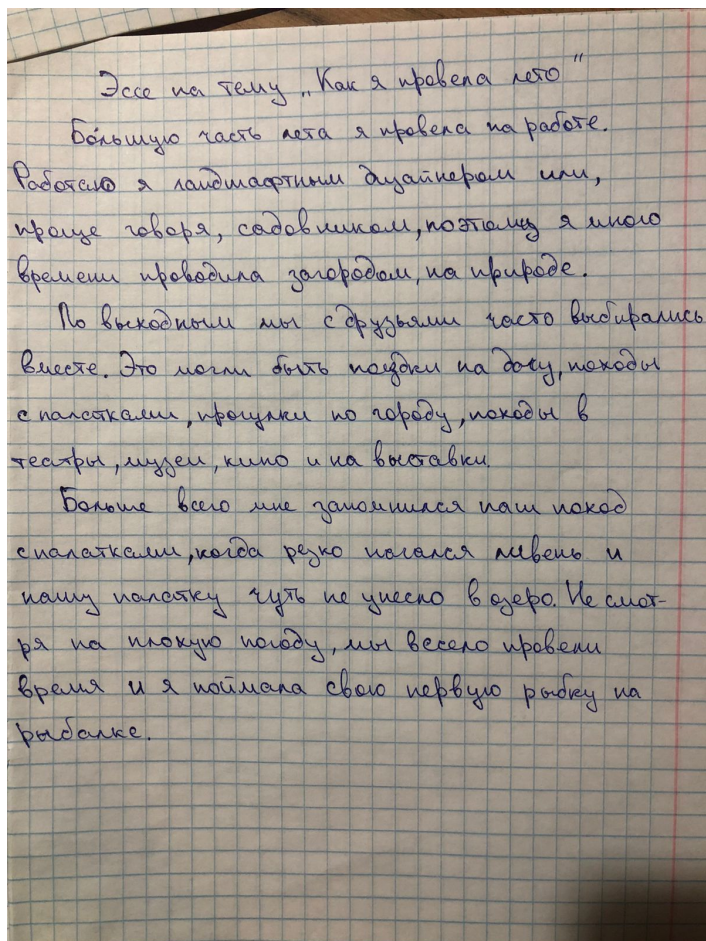 Эссе на тему „Как я провела лето"
Бо́льшую часть лета я провела на работе.
Работаю я ландшафтным дизайнером или,
проще говоря, садовником, поэтому я много
времени проводила загородом, на природе.
По выходным мы с друзьями часто выбирались
вместе. Это могли быть поездки на дачу, походы
с палатками, прогулки по городу, походы в
театры, музеи, кино и на выставки.
Больше всего мне запомнился наш поход
с палатками, когда резко начался ливень и
нашу палатку чуть не унесло в озеро. Не смот-
ря на плохую погоду, мы весело провели
время и я поймала свою первую рыбку на
рыбалке.